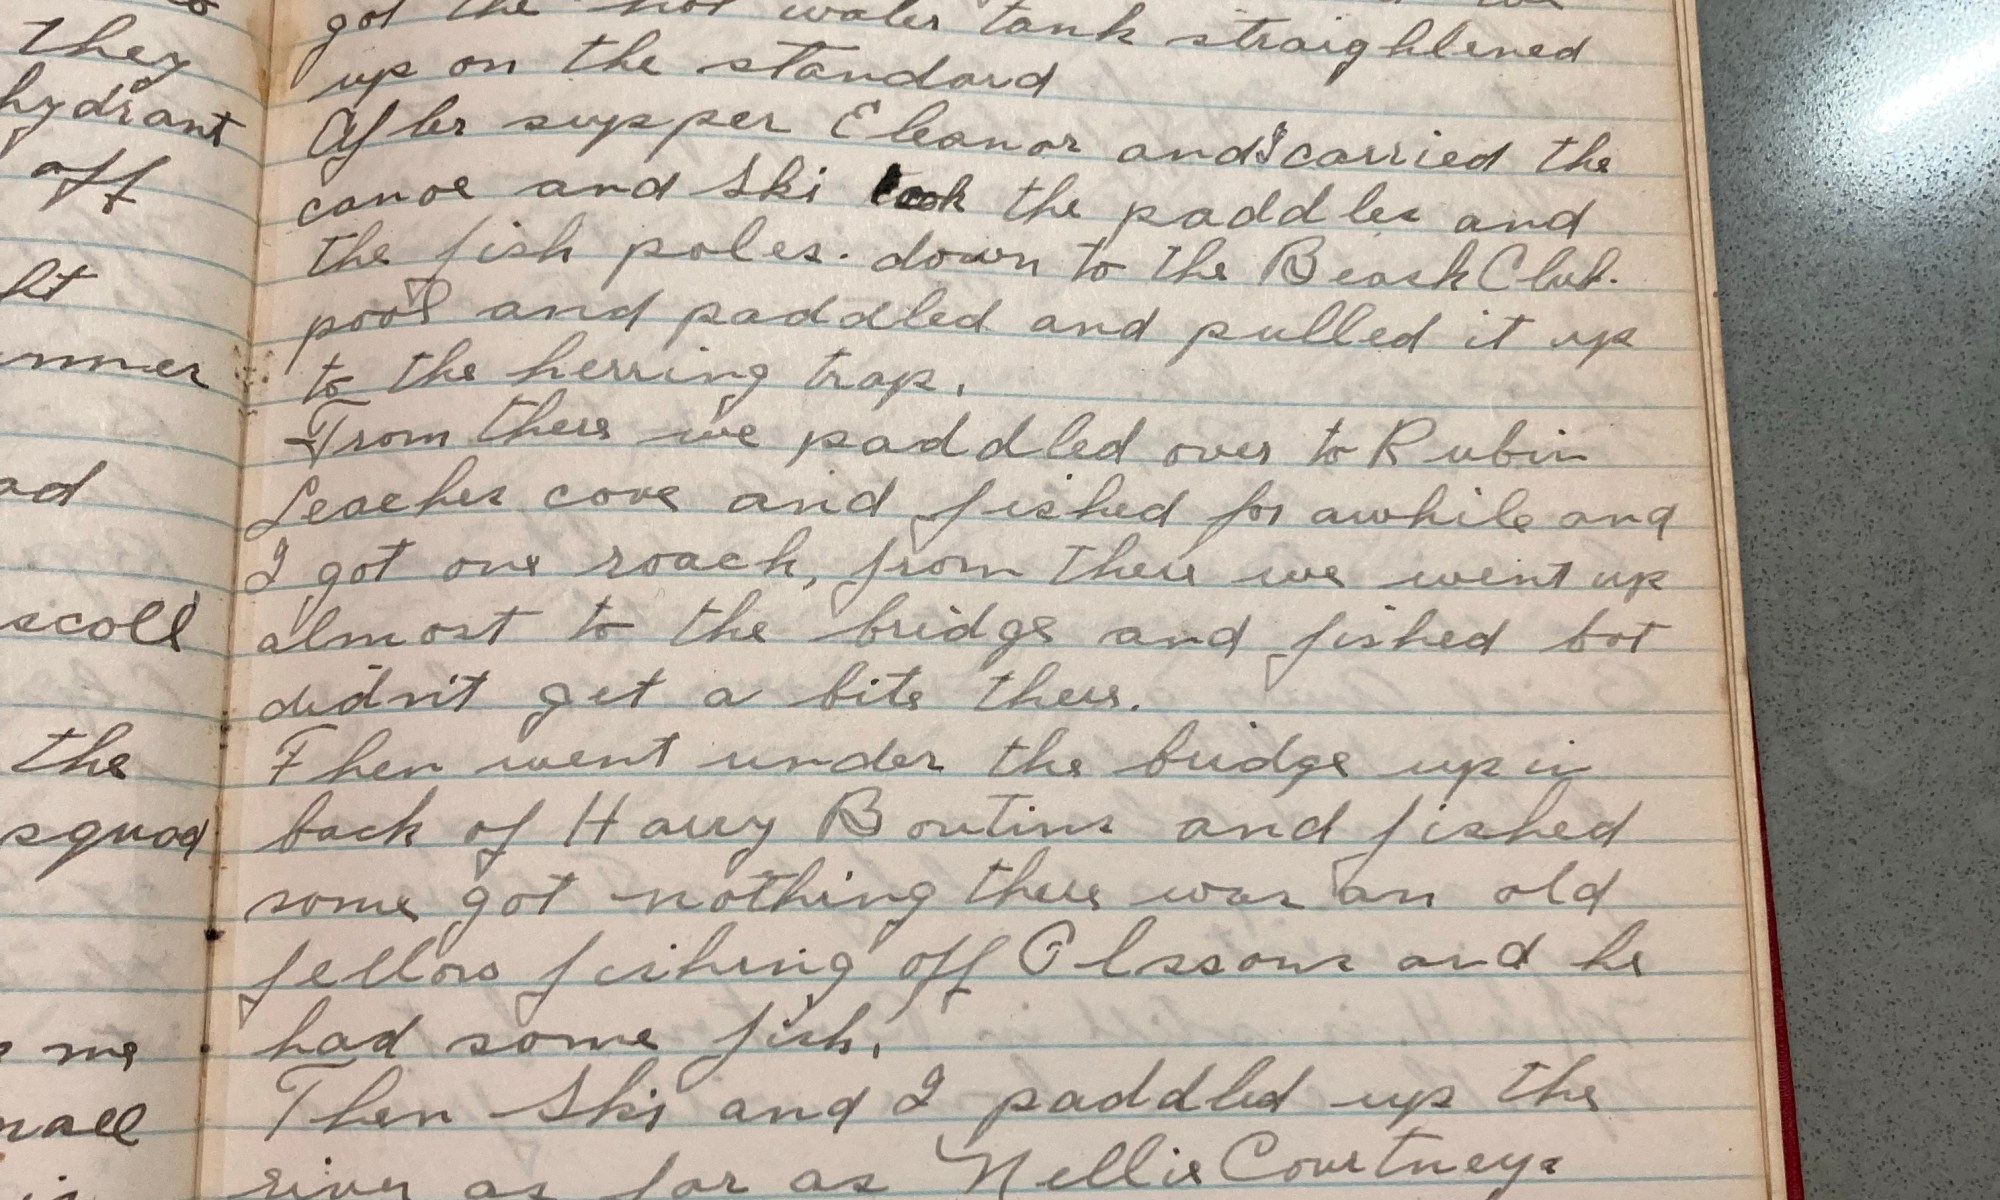 they
hydrant
off
ad
the
squad
me
got the hot water tank straightened
up on the standard
After supper Eleanor and I carried the
canoe and Ski took the paddles and
the fish poles. down to the Beach Club.
pool and paddled and pulled it up
to the herring trap.
From there we paddled over to Rubin
Leaches cove and fished for awhile and
I got one roach, from there we went up
almost to the bridge and fished bot
didn't get a bite there.
Then went under the bridge up in
back of Harry Boutins and fished
some got nothing there was an old
fellow fishing off Olssons and he
had some fish.
Then Ski and I paddled up the
river as far as Nellie Courtneys